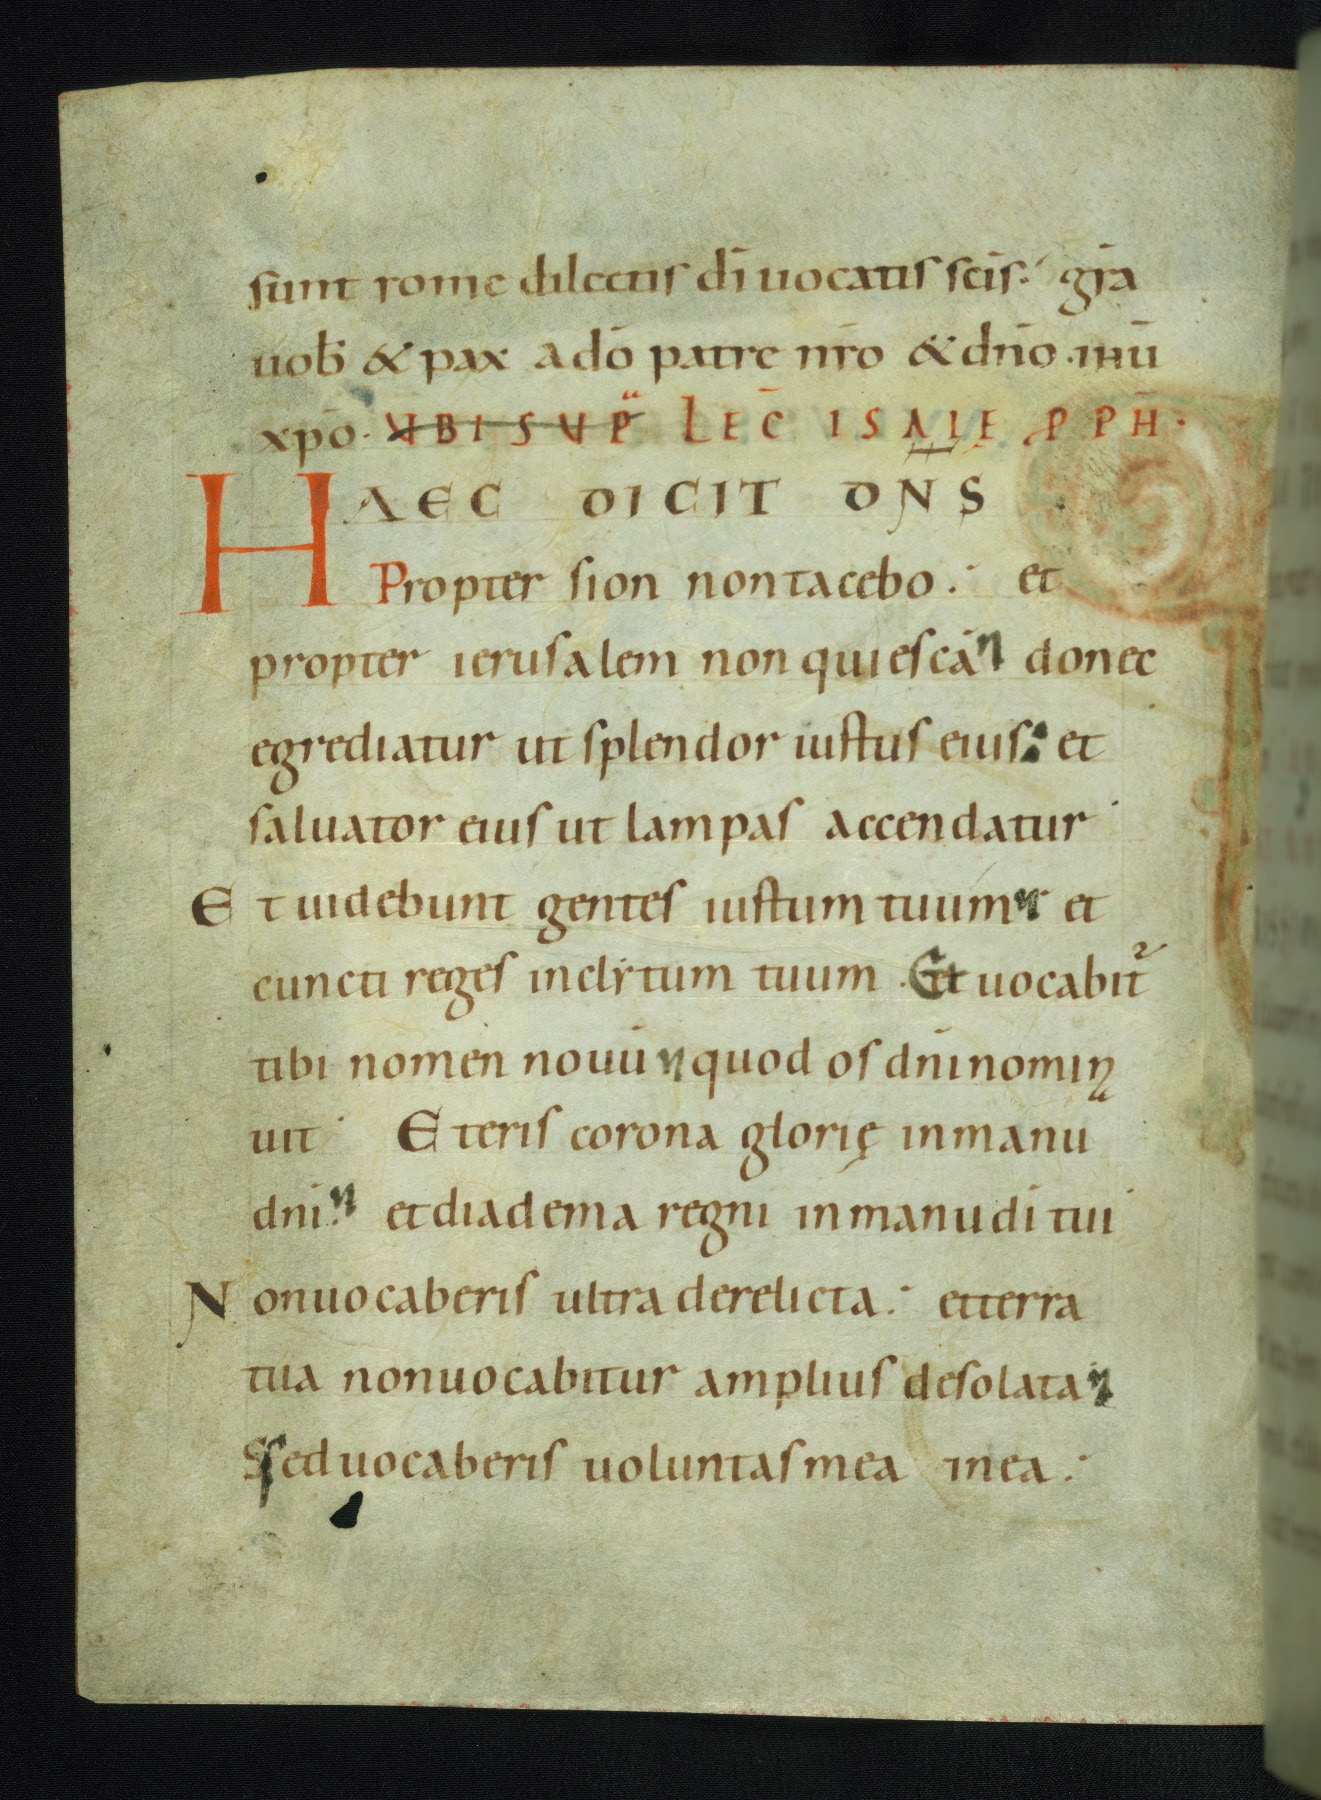 sunt rome dilectis dī uocatis scīs. gr̄a
uob̄ & pax a dō patre nr̄o & dn̄o ihū
xp̄o. VBI SVP̄ LEC̄ ISAIE PPH̄.
HAEC DICIT DN̄S
Propter sion non tacebo. et
propter ierusalem non quiescā donec
egrediatur ut splendor iustus eius. et
saluator eius ut lampas accendatur
Et uidebunt gentes iustum tuum et
cuncti reges inclytum tuum. Et uocabit᷑
tibi nomen nouū quod os dn̄i nomin
uit Et eris corona glorię in manu
dn̄i. et diadema regni in manu dī tui
Non uocaberis ultra derelicta. et terra
tua non uocabitur amplius desolata
Sed uocaberis uoluntas mea in ea.